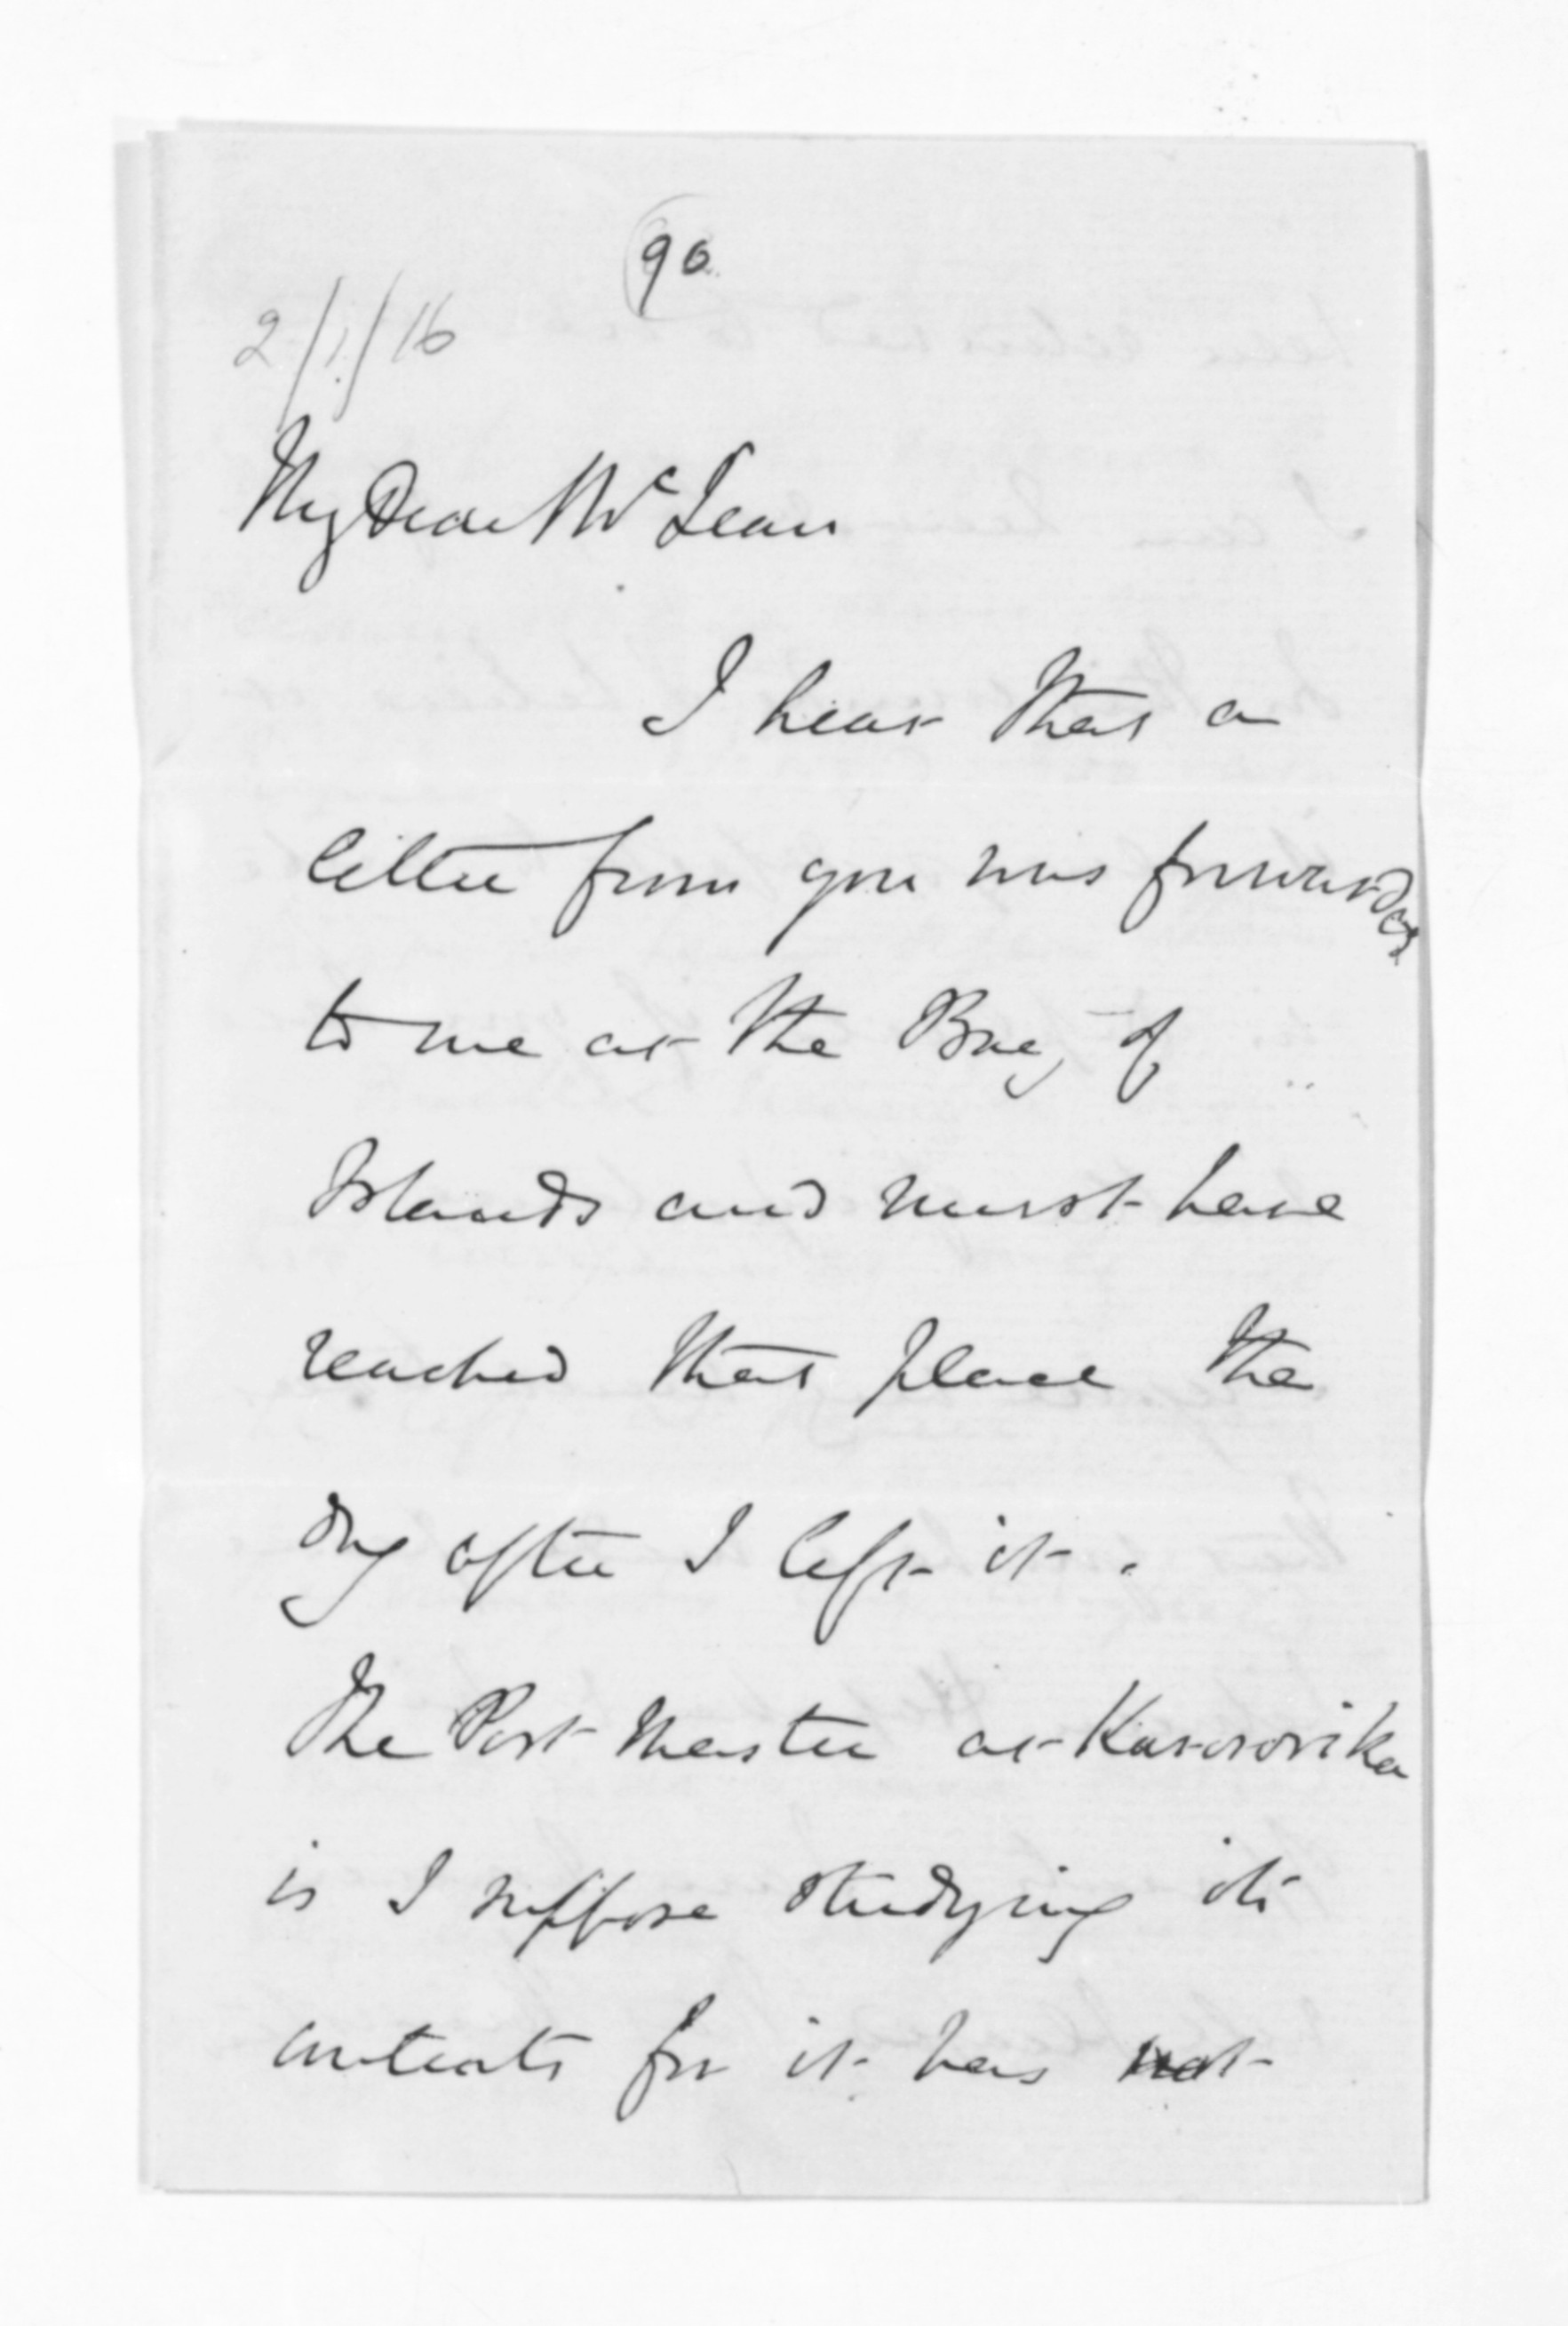 90
2/1/16
My Dear McLean
I hear that a
letter from you was forwarded
to me at the Bay of
Islands and must have
reached that place the
day after I left it.
The Post Master at Kororarika
is I suppose studying its
contents for it has not